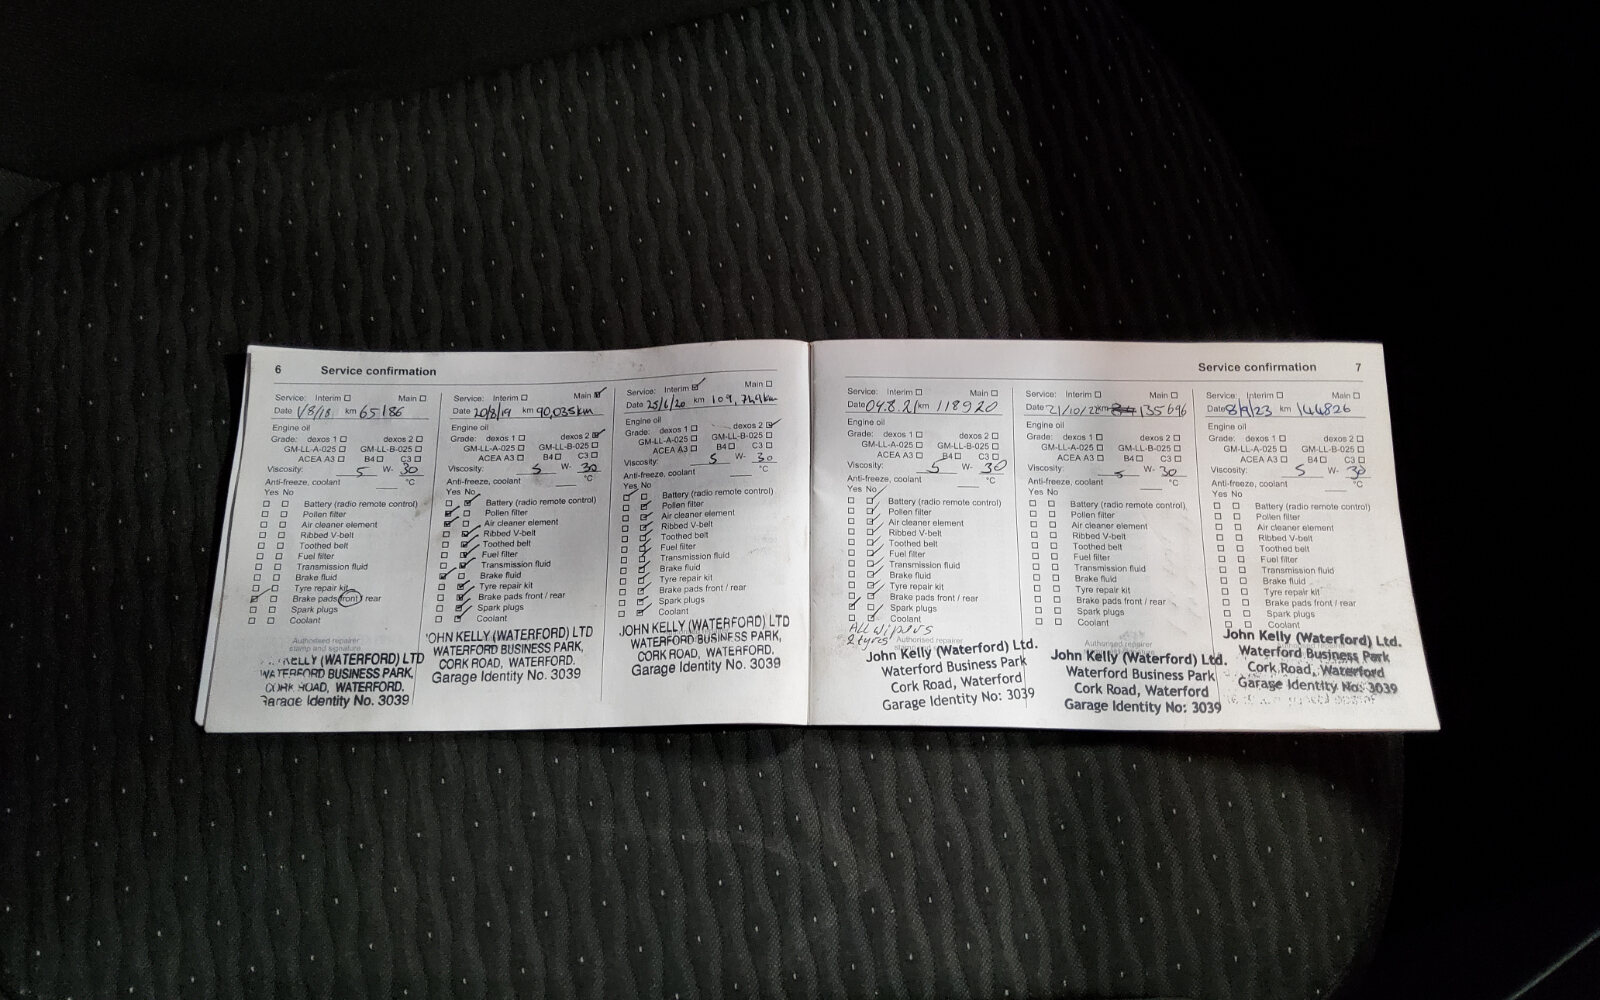 6 Service confirmation
Service: Interim ☐ Main ☐
Date 1/8/18 km 65186
Engine oil
Grade: dexos 1 ☐ dexos 2 ☐
GM-LL-A-025 ☐ GM-LL-B-025 ☐
ACEA A3 ☐ B4 ☐ C3 ☐
Viscosity: 5 W- 30
Anti-freeze, coolant °C
Yes No
☐ ☐ Battery (radio remote control)
☐ ☐ Pollen filter
☐ ☐ Air cleaner element
☐ ☐ Ribbed V-belt
☐ ☐ Toothed belt
☐ ☐ Fuel filter
☐ ☐ Transmission fluid
☐ ☐ Brake fluid
☐ ☐ Tyre repair kit
☑ ☐ Brake pads front / rear
☐ ☐ Spark plugs
☐ ☐ Coolant
Authorised repairer
stamp and signature
KELLY (WATERFORD) LTD
WATERFORD BUSINESS PARK,
CORK ROAD, WATERFORD.
Garage Identity No. 3039
Service: Interim ☐ Main ☑
Date 20/8/19 km 90,035km
Engine oil
Grade: dexos 1 ☐ dexos 2 ☑
GM-LL-A-025 ☐ GM-LL-B-025 ☐
ACEA A3 ☐ B4 ☐ C3 ☐
Viscosity: 5 W- 30
Anti-freeze, coolant °C
Yes No
☐ ☑ Battery (radio remote control)
☑ ☐ Pollen filter
☑ ☐ Air cleaner element
☐ ☑ Ribbed V-belt
☐ ☑ Toothed belt
☐ ☑ Fuel filter
☐ ☑ Transmission fluid
☑ ☐ Brake fluid
☐ ☑ Tyre repair kit
☐ ☑ Brake pads front / rear
☐ ☑ Spark plugs
☐ ☑ Coolant
JOHN KELLY (WATERFORD) LTD
WATERFORD BUSINESS PARK,
CORK ROAD, WATERFORD.
Garage Identity No. 3039
Service: Interim ☑ Main ☐
Date 25/6/20 km 109,749km
Engine oil
Grade: dexos 1 ☐ dexos 2 ☑
GM-LL-A-025 ☐ GM-LL-B-025 ☐
ACEA A3 ☐ B4 ☐ C3 ☐
Viscosity: 5 W- 30
Anti-freeze, coolant °C
Yes No
☑ ☐ Battery (radio remote control)
☐ ☑ Pollen filter
☐ ☑ Air cleaner element
☐ ☑ Ribbed V-belt
☐ ☑ Toothed belt
☐ ☑ Fuel filter
☐ ☑ Transmission fluid
☐ ☑ Brake fluid
☐ ☑ Tyre repair kit
☐ ☑ Brake pads front / rear
☐ ☑ Spark plugs
☐ ☑ Coolant
JOHN KELLY (WATERFORD) LTD
WATERFORD BUSINESS PARK,
CORK ROAD, WATERFORD.
Garage Identity No. 3039
Service confirmation 7
Service: Interim ☐ Main ☐
Date 04.8.21 km 118920
Engine oil
Grade: dexos 1 ☐ dexos 2 ☐
GM-LL-A-025 ☐ GM-LL-B-025 ☐
ACEA A3 ☐ B4 ☐ C3 ☐
Viscosity: 5 W- 30
Anti-freeze, coolant °C
Yes No
☐ ☑ Battery (radio remote control)
☐ ☑ Pollen filter
☐ ☑ Air cleaner element
☐ ☑ Ribbed V-belt
☐ ☑ Toothed belt
☐ ☑ Fuel filter
☐ ☑ Transmission fluid
☐ ☑ Brake fluid
☐ ☑ Tyre repair kit
☐ ☑ Brake pads front / rear
☑ ☑ Spark plugs
☐ ☐ Coolant
All wipers
2 tyres Authorised repairer
John Kelly (Waterford) Ltd.
Waterford Business Park
Cork Road, Waterford
Garage Identity No: 3039
Service: Interim ☐ Main ☐
Date 21/10/22 km 135696
Engine oil
Grade: dexos 1 ☐ dexos 2 ☐
GM-LL-A-025 ☐ GM-LL-B-025 ☐
ACEA A3 ☐ B4 ☐ C3 ☐
Viscosity: 5 W- 30
Anti-freeze, coolant °C
Yes No
☐ ☐ Battery (radio remote control)
☐ ☐ Pollen filter
☐ ☐ Air cleaner element
☐ ☐ Ribbed V-belt
☐ ☐ Toothed belt
☐ ☐ Fuel filter
☐ ☐ Transmission fluid
☐ ☐ Brake fluid
☐ ☐ Tyre repair kit
☐ ☐ Brake pads front / rear
☐ ☐ Spark plugs
☐ ☐ Coolant
Authorised repairer
John Kelly (Waterford) Ltd.
Waterford Business Park
Cork Road, Waterford
Garage Identity No: 3039
Service: Interim ☐ Main ☐
Date 8/9/23 km 144826
Engine oil
Grade: dexos 1 ☐ dexos 2 ☐
GM-LL-A-025 ☐ GM-LL-B-025 ☐
ACEA A3 ☐ B4 ☐ C3 ☐
Viscosity: 5 W- 30
Anti-freeze, coolant °C
Yes No
☐ ☐ Battery (radio remote control)
☐ ☐ Pollen filter
☐ ☐ Air cleaner element
☐ ☐ Ribbed V-belt
☐ ☐ Toothed belt
☐ ☐ Fuel filter
☐ ☐ Transmission fluid
☐ ☐ Brake fluid
☐ ☐ Tyre repair kit
☐ ☐ Brake pads front / rear
☐ ☐ Spark plugs
☐ ☐ Coolant
John Kelly (Waterford) Ltd.
Waterford Business Park
Cork Road, Waterford
Garage Identity No: 3039